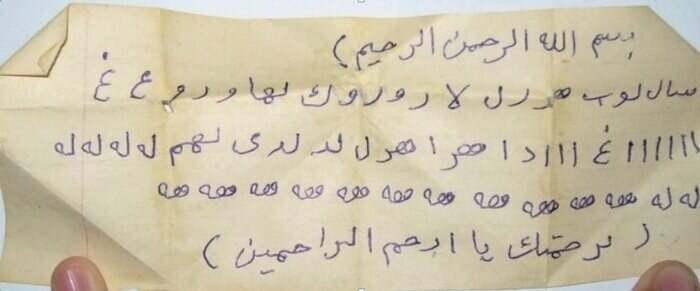 بسم الله الرحمن الرحيم )
سال لوب هررل لا روزوك لها ورو ع غ
ااااااا غ اااد ا هرا هرل لد لدى لهم له له له له
له له هه هه هه هه هه هه هه هه هه هه هه
( برحمتك يا ارحم الراحمين )